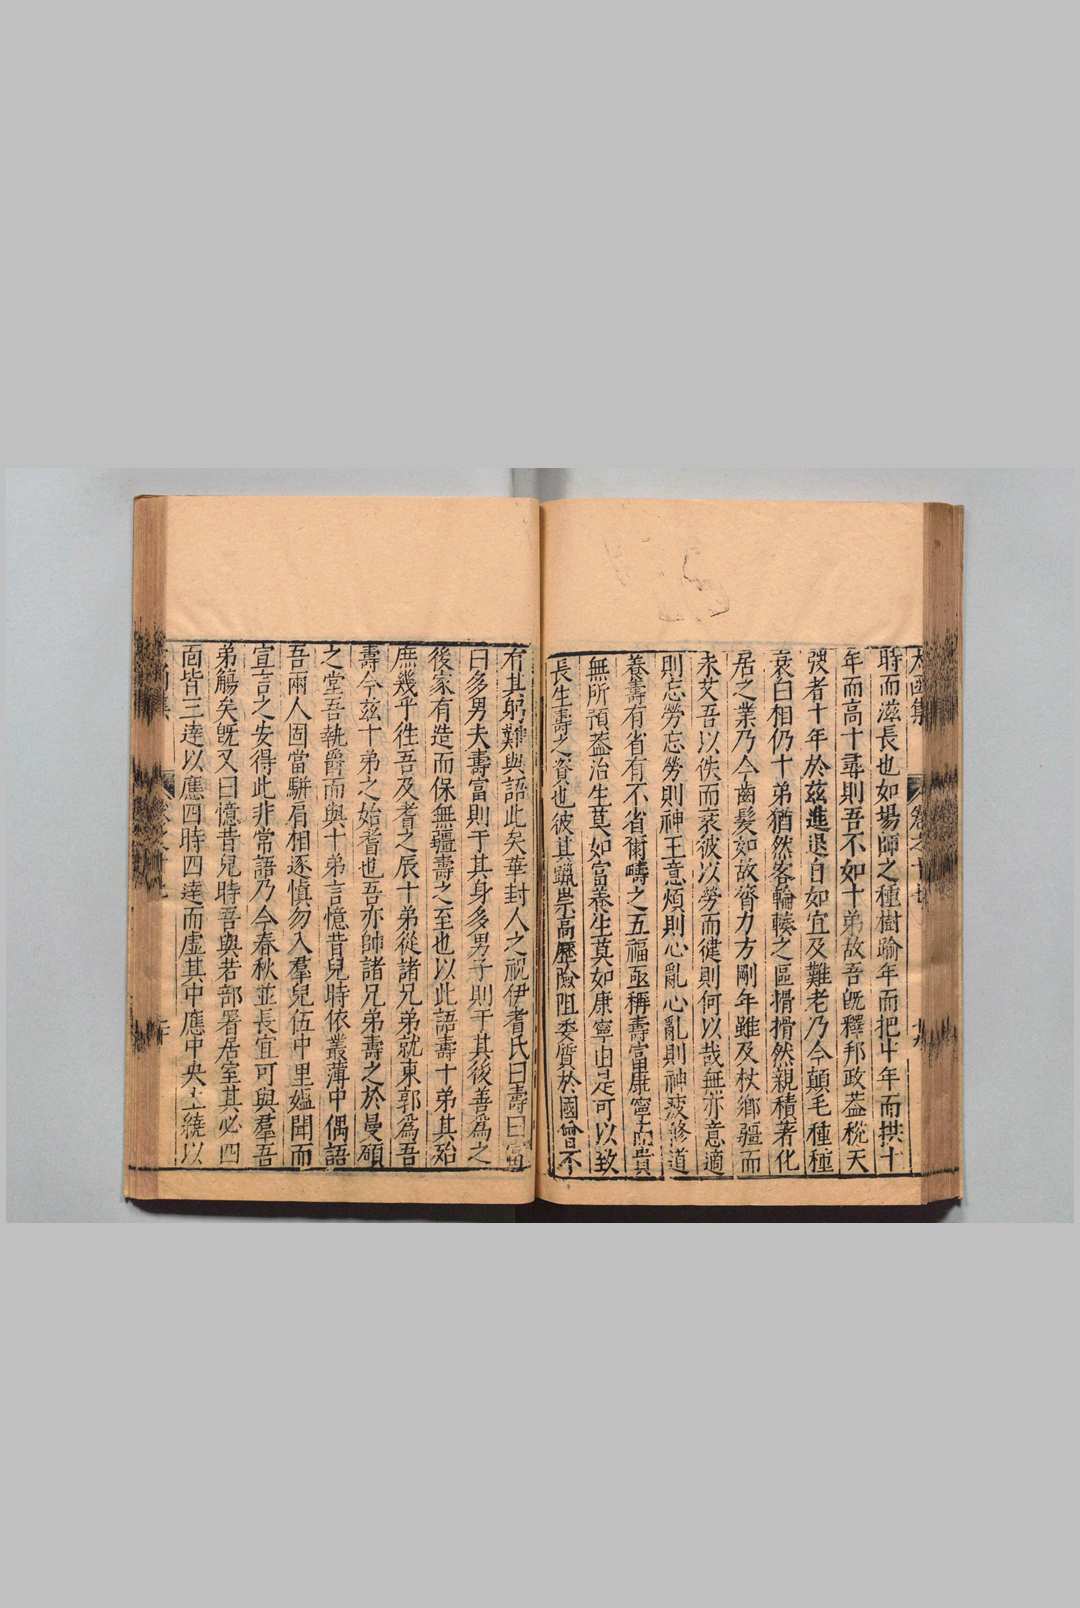 太函集 卷之十七 十九
時而滋長也如場師之種樹踰年而把廿年而拱十
年而高十尋則吾不如十弟故吾旣釋邦政葢稅天
弢者十年於茲進退自如宜及難老乃今顛毛種種
衰白相仍十弟猶然客輪轃之區搰搰然親積著化
居之業乃今齒髮如故膂力方剛年雖及杖鄉疆而
未艾吾以佚而衰彼以勞而健則何以哉無亦意適
則忘勞忘勞則神王意煩則心亂心亂則神疲修道
養壽有省有不省爾疇之五福亟稱壽富康寧而貴
無所預葢治生莫如富養生莫如康寧由是可以致
長生壽之資也彼其躐崇高歷險阻委質於國曾不
有其躬難與語此矣華封人之祝伊耆氏曰壽曰富
曰多男夫壽富則于其身多男子則于其後善爲之
後家有造而保無疆壽之至也以此語壽十弟其殆
庶幾乎徃吾及耆之辰十弟從諸兄弟就東郭爲吾
壽今茲十弟之始耆也吾亦帥諸兄弟壽之於曼碩
之堂吾執爵而與十弟言憶昔兒時依叢薄中偶語
吾兩人固當駢肩相逐愼勿入羣兒伍中里媼聞而
宣言之安得此非常語乃今春秋並長宜可與羣吾
弟觴矣旣又曰憶昔兒時吾與若部署居室其必四
面皆三達以應四時四達而虛其中應中央土繞以